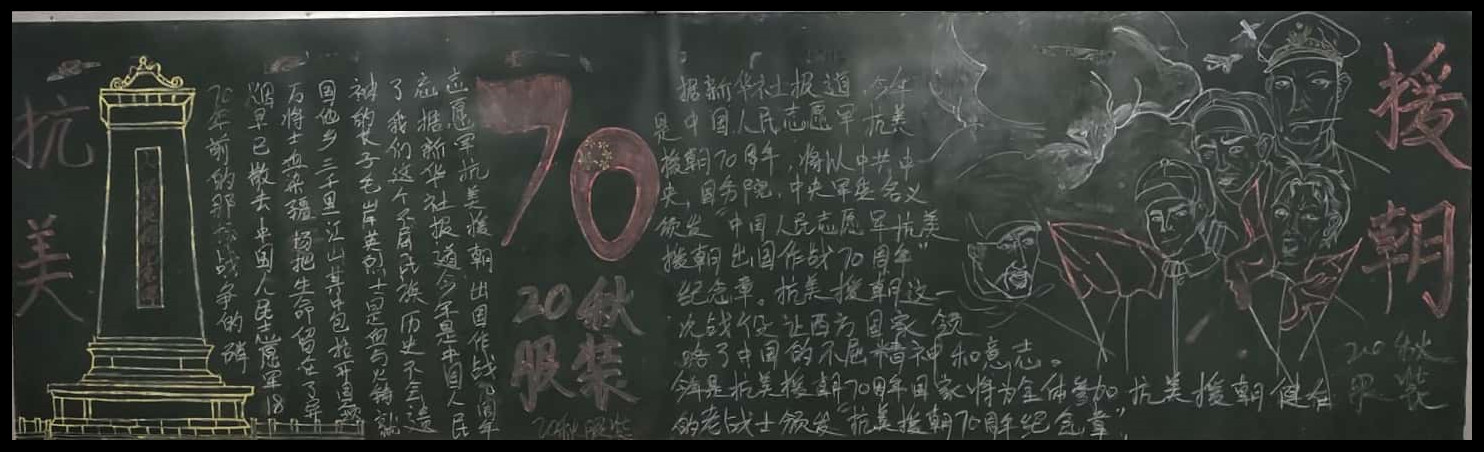 抗美
70年前的那场战争的硝
烟早已散去中国人民志愿军18
万将士血染疆场把生命留在了异
国他乡三千里江山其中包括开国领
袖的长子毛岸英烈士是血与火铸就
了我们这个不屈民族历史不会遗
忘据新华社报道今年是中国人民
志愿军抗美援朝出国作战70周年
70
20秋
服装
20秋服装
据新华社报道,今年
是中国人民志愿军抗美
援朝70周年,将以中共中
央,国务院,中央军委含义
颁发"中国人民志愿军抗美
援朝出国作战70周年"
纪念章。抗美援朝这一
次战役让西方国家领
略了中国的不屈精神和意志。
作战70周年国家将为全体参加抗美援朝健在
的老战士颁发"抗美援朝70周年纪念章"。
援朝
20秋
服装